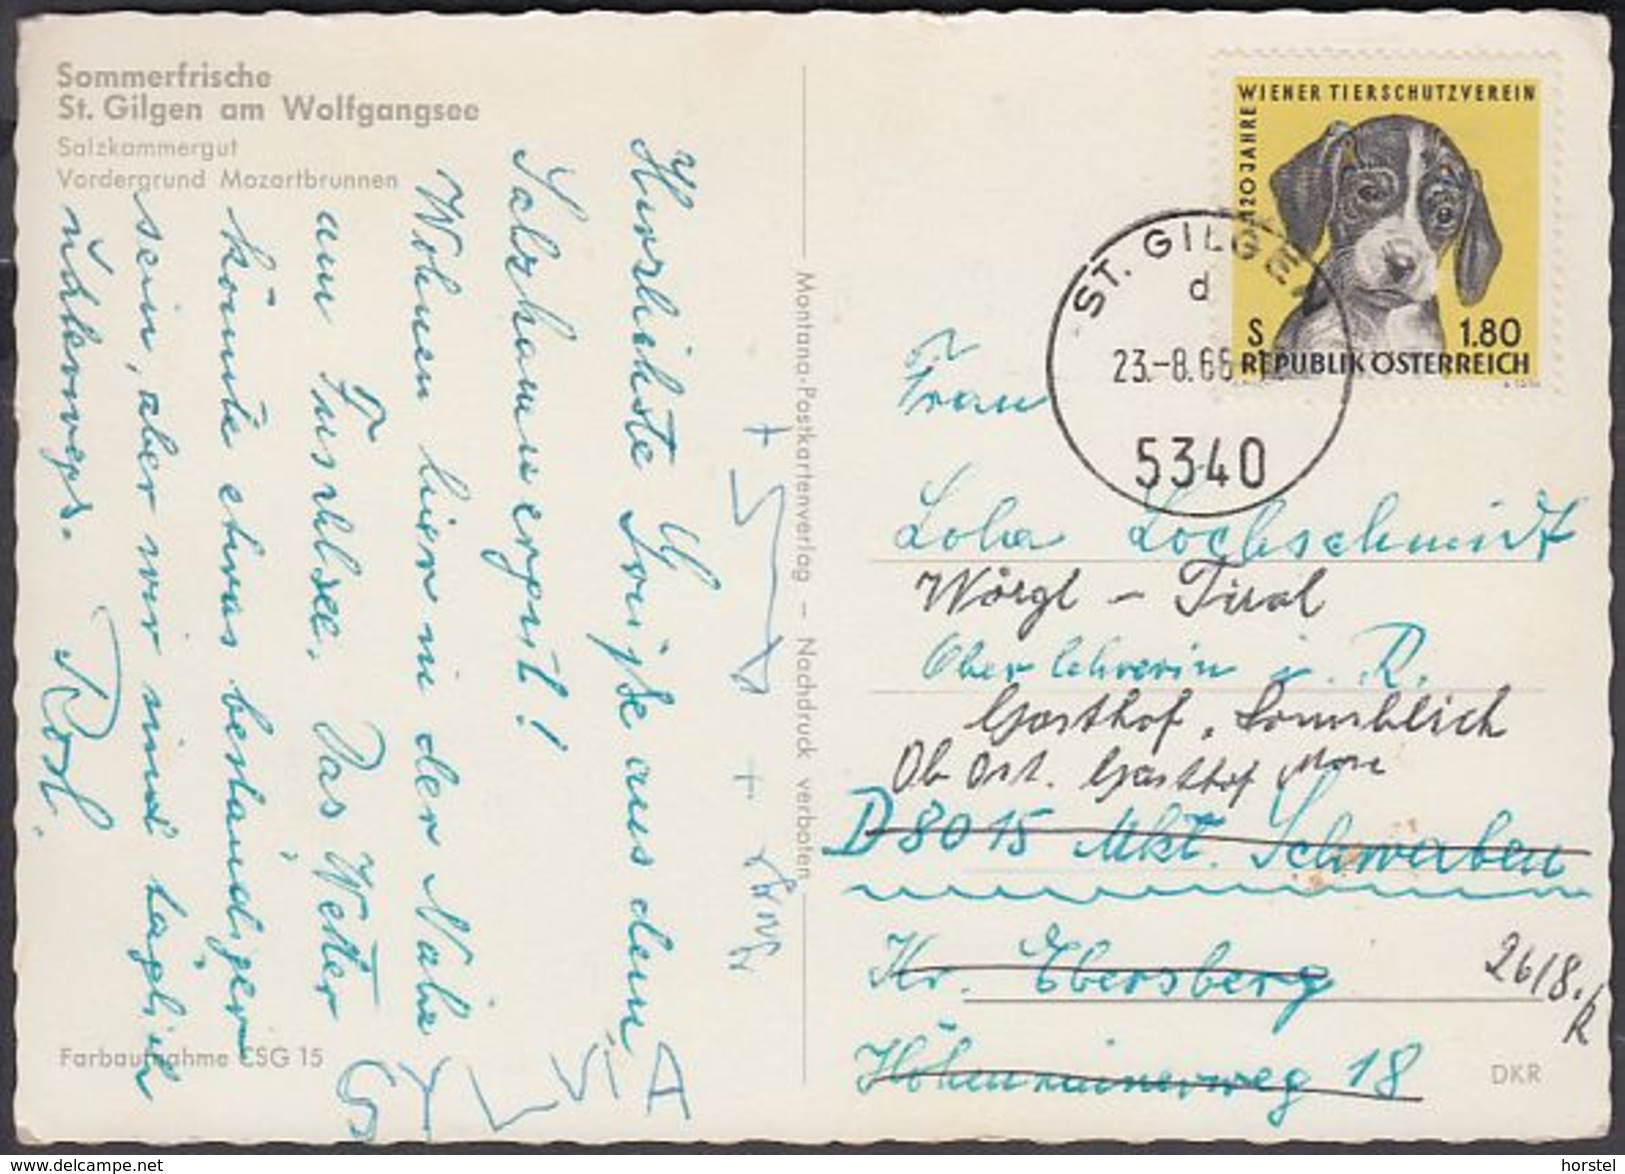 Sommerfrische
St. Gilgen am Wolfgangsee
Salzkammergut
Vordergrund Mozartbrunnen
Herzlichste Grüße aus dem
Salzkammergut!
Wohnen hier in der Nähe
am Fuschlsee. Das Wetter
könnte etwas beständiger
sein, aber wir sind täglich
unterwegs.
Rosl.
Farbaufnahme CSG 15
SYLVIA
Montana-Postkartenverlag – Nachdruck verboten
WIENER TIERSCHUTZVEREIN
120 JAHRE
S 1.80
REPUBLIK ÖSTERREICH
ST. GILGEN
d
23.-8.66
5340
Frau
Lola Lochschmidt
Wörgl – Tirol
Oberlehrerin i. R.
Gasthof „Sonnblick
D 8015 Mkt. Schwaben
Kr. Ebersberg
Höhenrainerweg 18
26/8.
DKR
horstel
www.delcampe.net